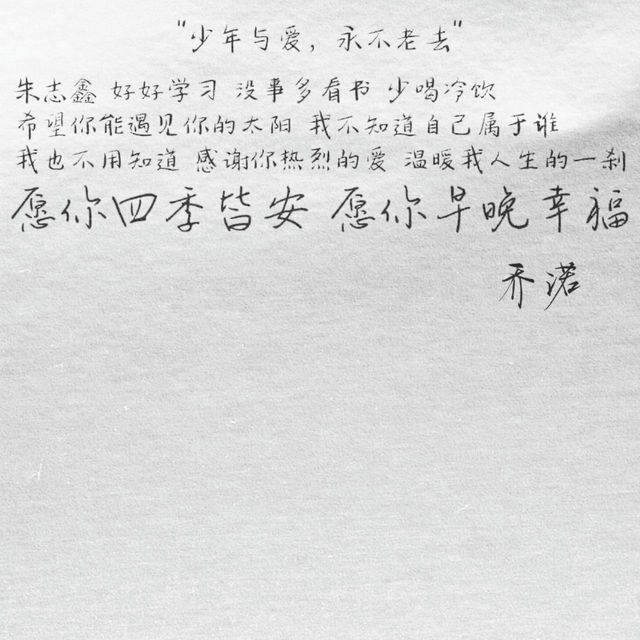 "少年与爱，永不老去"
朱志鑫 好好学习 没事多看书 少喝冷饮
希望你能遇见你的太阳 我不知道自己属于谁
我也不用知道 感谢你热烈的爱 温暖我人生的一刹
愿你四季皆安 愿你早晚幸福
乔诺